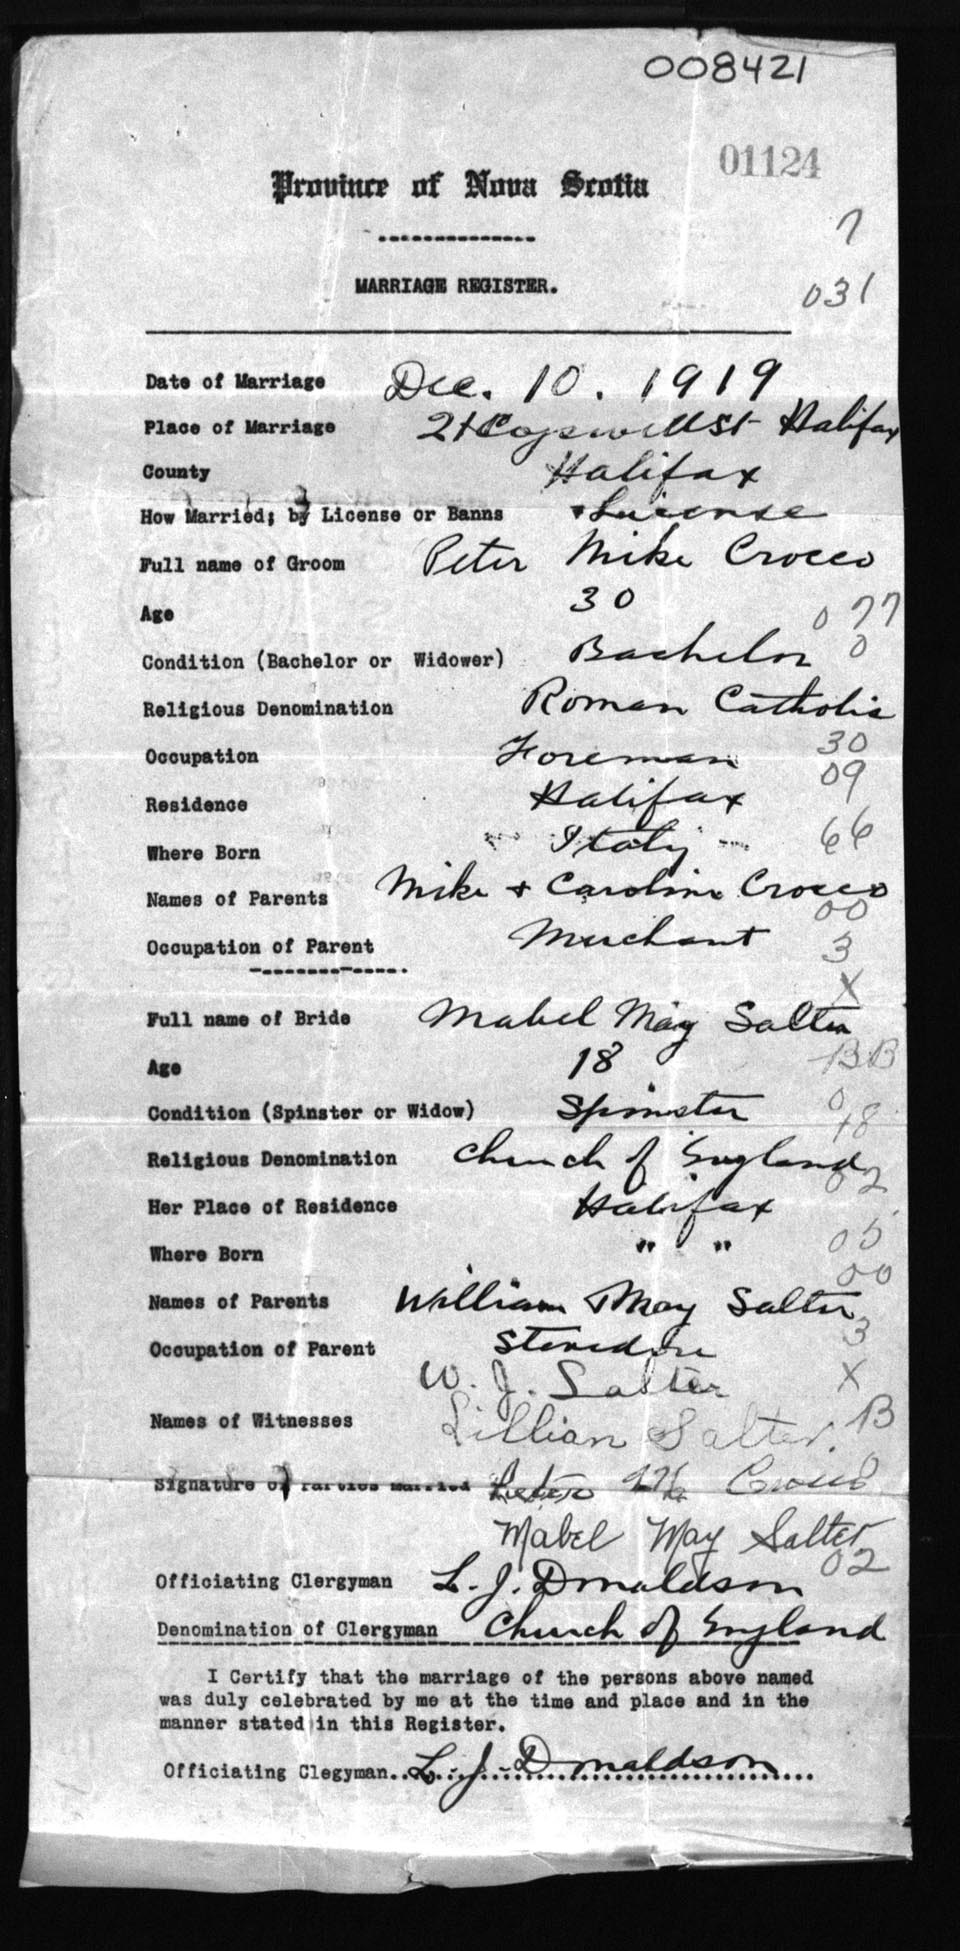 008421
01124
Province of Nova Scotia
7
MARRIAGE REGISTER.
031
Date of Marriage Dec. 10. 1919
Place of Marriage 21 Cogswell St Halifax
County Halifax
How Married; by License or Banns License
Full name of Groom Peter Mike Crocco
Age 30
077
Condition (Bachelor or Widower) Bachelor 0
Religious Denomination Roman Catholic
Occupation Foreman 30
09
Residence Halifax
Where Born Italy 66
Names of Parents Mike + Caroline Crocco
00
Occupation of Parent Merchant 3
X
Full name of Bride Mabel May Salter
Age 18 BB
Condition (Spinster or Widow) Spinster 0
18
Religious Denomination Church of England
02
Her Place of Residence Halifax
Where Born " " 05
00
Names of Parents William + May Salter
3
Occupation of Parent Stevedore
W. J. Salter X
Names of Witnesses Lillian Salter. B
Signature of Parties Married Peter Crocco
Mabel May Salter
02
Officiating Clergyman L. J. Donaldson
Denomination of Clergyman Church of England
I Certify that the marriage of the persons above named
was duly celebrated by me at the time and place and in the
manner stated in this Register.
Officiating Clegyman.. L. J. Donaldson